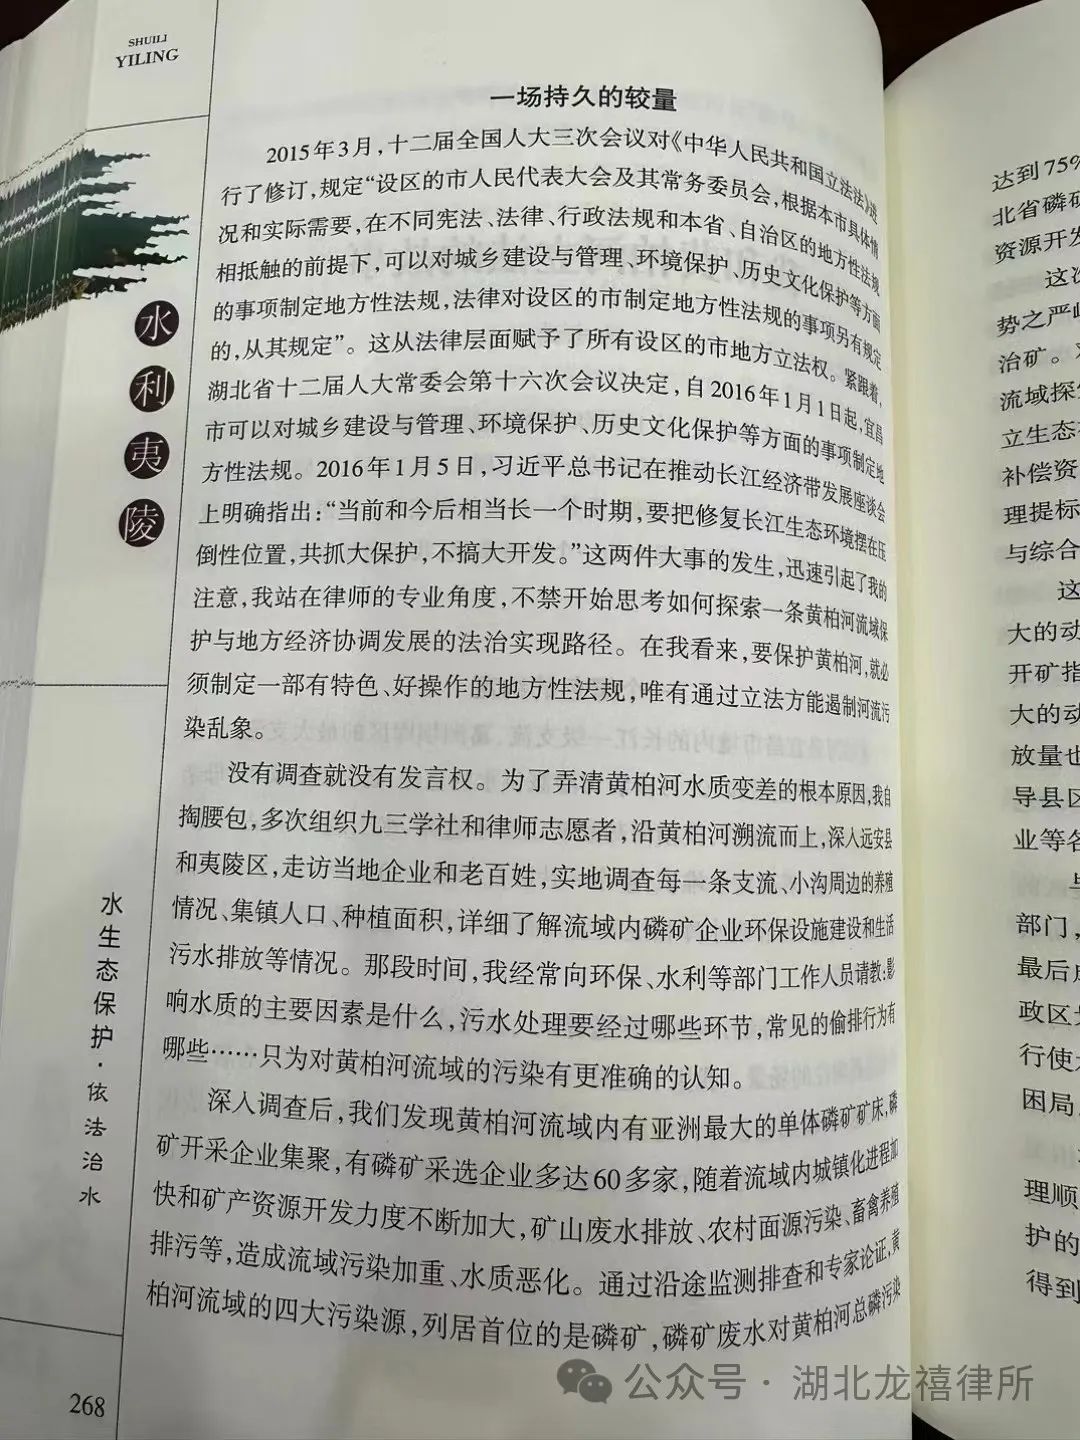 SHUILI
YILING
水利夷陵
水生态保护·依法治水
268
一场持久的较量
2015年3月，十二届全国人大三次会议对《中华人民共和国立法法》进
行了修订，规定“设区的市人民代表大会及其常务委员会，根据本市具体情
况和实际需要，在不同宪法、法律、行政法规和本省、自治区的地方性法规
相抵触的前提下，可以对城乡建设与管理、环境保护、历史文化保护等方面
的事项制定地方性法规，法律对设区的市制定地方性法规的事项另有规定
的，从其规定”。这从法律层面赋予了所有设区的市地方立法权。紧跟着，
湖北省十二届人大常委会第十六次会议决定，自2016年1月1日起，宜昌
市可以对城乡建设与管理、环境保护、历史文化保护等方面的事项制定地
方性法规。2016年1月5日，习近平总书记在推动长江经济带发展座谈会
上明确指出：“当前和今后相当长一个时期，要把修复长江生态环境摆在压
倒性位置，共抓大保护，不搞大开发。”这两件大事的发生，迅速引起了我的
注意，我站在律师的专业角度，不禁开始思考如何探索一条黄柏河流域保
护与地方经济协调发展的法治实现路径。在我看来，要保护黄柏河，就必
须制定一部有特色、好操作的地方性法规，唯有通过立法方能遏制河流污
染乱象。
没有调查就没有发言权。为了弄清黄柏河水质变差的根本原因，我自
掏腰包，多次组织九三学社和律师志愿者，沿黄柏河溯流而上，深入远安县
和夷陵区，走访当地企业和老百姓，实地调查每一条支流、小沟周边的养殖
情况、集镇人口、种植面积，详细了解流域内磷矿企业环保设施建设和生活
污水排放等情况。那段时间，我经常向环保、水利等部门工作人员请教：影
响水质的主要因素是什么，污水处理要经过哪些环节，常见的偷排行为有
哪些……只为对黄柏河流域的污染有更准确的认知。
深入调查后，我们发现黄柏河流域内有亚洲最大的单体磷矿矿床，磷
矿开采企业集聚，有磷矿采选企业多达60多家，随着流域内城镇化进程加
快和矿产资源开发力度不断加大，矿山废水排放、农村面源污染、畜禽养殖
排污等，造成流域污染加重、水质恶化。通过沿途监测排查和专家论证，黄
柏河流域的四大污染源，列居首位的是磷矿，磷矿废水对黄柏河总磷污染
达到75%
北省磷矿
资源开发
这次
势之严峻
治矿。
流域探
立生态
补偿资
理提标
与综合
这
大的动
开矿指
大的动
放量也
导县区
业等名
与
部门，
最后
政区
行使
困局
理顺
护的
得到
公众号·湖北龙禧律所